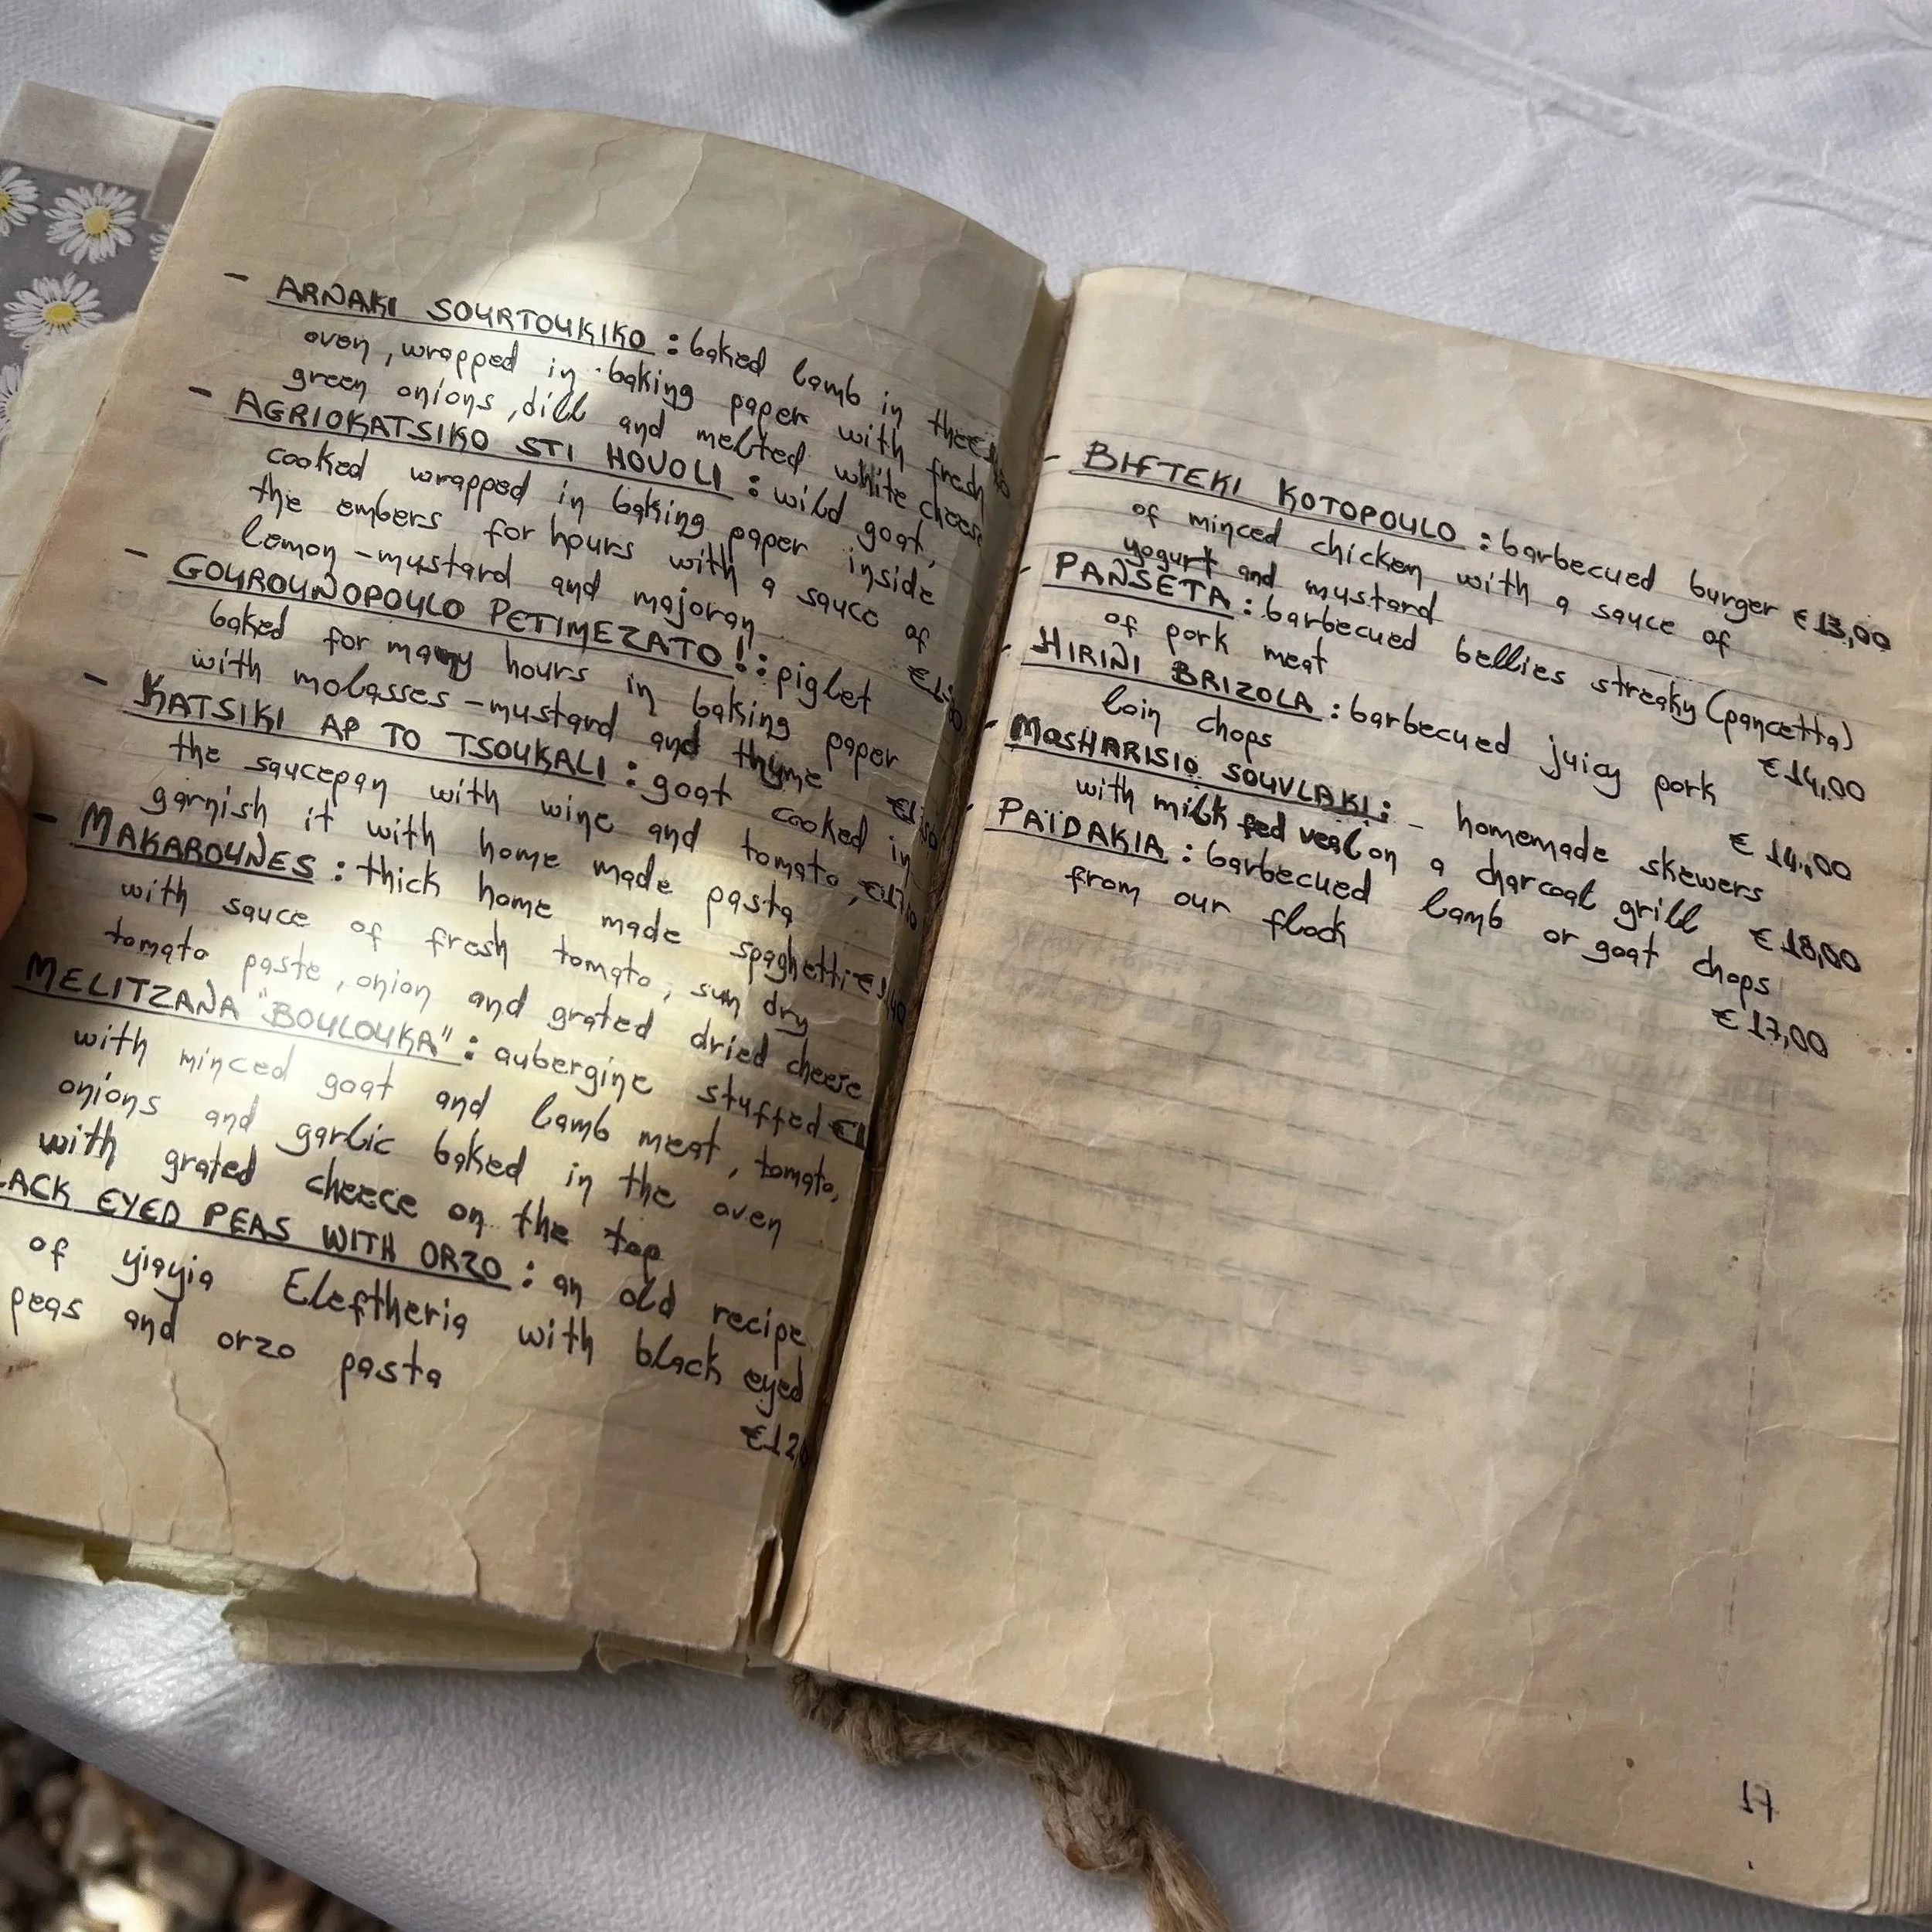 - ARNAKI SOURTOUKIKO : baked lamb in the
oven, wrapped in baking paper with fresh
green onions, dill and melted white cheese
- AGRIOKATSIKO STI HOVOLI : wild goat,
cooked wrapped in baking paper inside
the embers for hours with a sauce of
lemon - mustard and majoran
- GOUROUNOPOULO PETIMEZATO! : piglet
baked for many hours in baking paper
with molasses - mustard and thyme
- KATSIKI AP TO TSOUKALI : goat cooked in
the saucepan with wine and tomato,
garnish it with home made pasta
- MAKAROUNES : thick home made spaghetti
with sauce of fresh tomato, sun dry
tomato paste, onion and grated dried cheese
MELITZANA "BOULOUKA" : aubergine stuffed
with minced goat and lamb meat, tomato,
onions and garlic baked in the oven
with grated cheece on the top
LACK EYED PEAS WITH ORZO : an old recipe
of yiayia Eleftheria with black eyed
peas and orzo pasta
€12,0
- BIFTEKI KOTOPOULO : barbecued burger €13,00
of minced chicken with a sauce of
yogurt and mustard
- PANSETA : barbecued bellies streaky (pancetta)
of pork meat €14,00
- HIRINI BRIZOLA : barbecued juicy pork
loin chops €14,00
- MOSHARISIO SOUVLAKI : - homemade skewers
with milk fed veal on a charcoal grill €18,00
- PAÏDAKIA : barbecued lamb or goat chops
from our flock €17,00
17